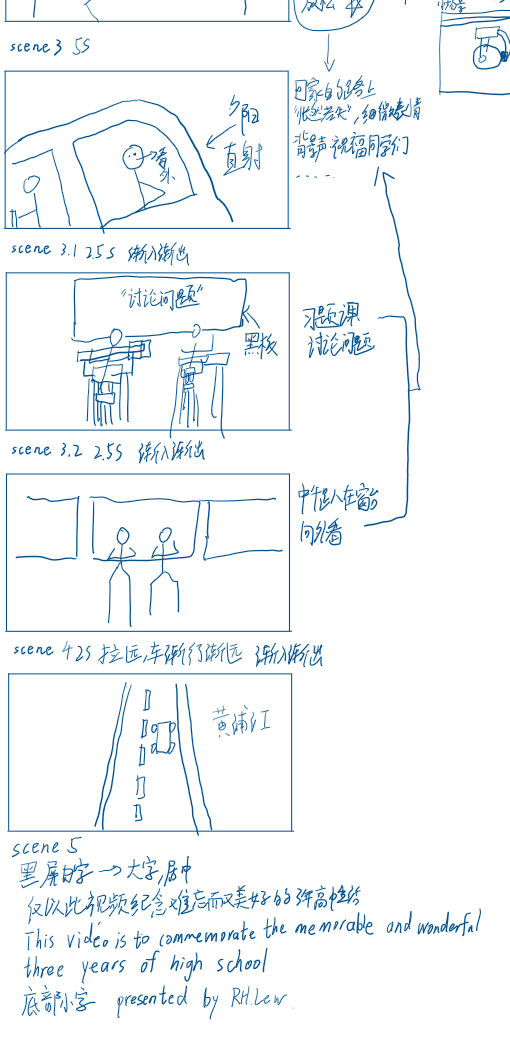 放松
scene 3 5S
夕阳
直射
看外
回家的路上
"怅然若失", 细微表情
背景声 祝福同学们
......
scene 3.1 2.5S 渐入渐出
"讨论问题"
黑板
习题课
讨论问题
scene 3.2 2.5S 渐入渐出
中午 人在窗台
向外看
scene 4 2S 拉远,车渐行渐远 渐入渐出
黄浦江
scene 5
黑屏白字 → 大字,居中
仅以此视频纪念难忘而又美好的3年高中生活
This video is to commemorate the memorable and wonderful
three years of high school
底部小字 presented by RH.Lew.